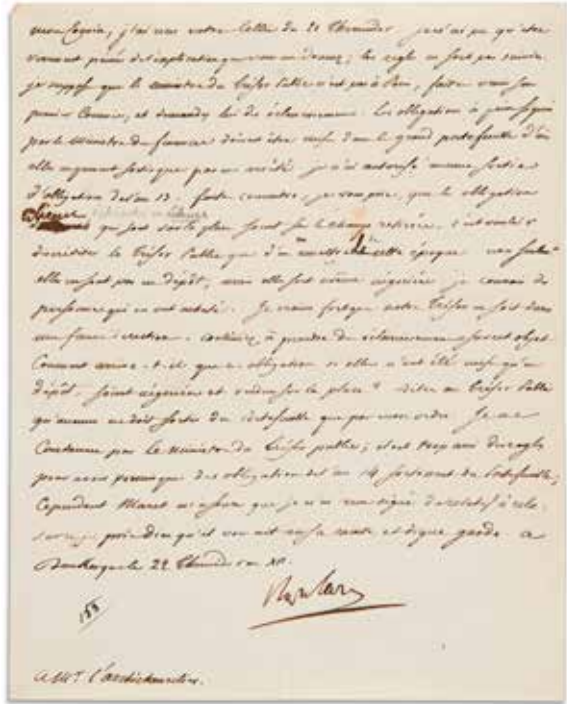 mon Cousin, j'ai reçu votre lettre du 21 Thermidor je n'ai pu qu'être
des explications que vous me donnez; les règles ne sont pas suivies
je suppose que le ministre du Trésor Public n'est pas à Paris, faites venir son
premier Commis, et demandez lui des éclaircissements. Les obligations
par le ministre des finances doivent être mises dans le grand portefeuille d'où
elles ne peuvent sortir que par un arrêté. je n'ai autorisé aucune sortie
d'obligations de l'an 13. faites connaître, je vous prie, que les obligations
qui sont sur la place soient sur le champ retirées. c'est vouloir
discréditer le Trésor Public que d'en émettre à cette époque. non seulement
elles ne sont pas en dépôt, mais elles sont même négociées. je connais des
personnes qui en ont acheté. Je crains fort que notre Trésor ne soit dans
une fausse direction. continuez à prendre des éclaircissements sur cet objet.
Comment arrive-t-il que ces obligations si elles n'ont été mises qu'en
dépôt, soient négociées et vendues sur la place? dites au Trésor Public
qu'aucune ne doit sortir du Portefeuille que par mon ordre. Je ne
par le ministre du Trésor public; c'est trop des règles
pour avoir permis que des obligations de l'an 14 sortissent du Portefeuille;
Cependant Maret m'assure que je n'ai rien signé de relatif à cela.
sur ce je prie Dieu qu'il vous ait en sa sainte et digne garde. à
Dunkerque le 22 Thermidor an
Napoleon
188
A Mr. l'archichancelier.